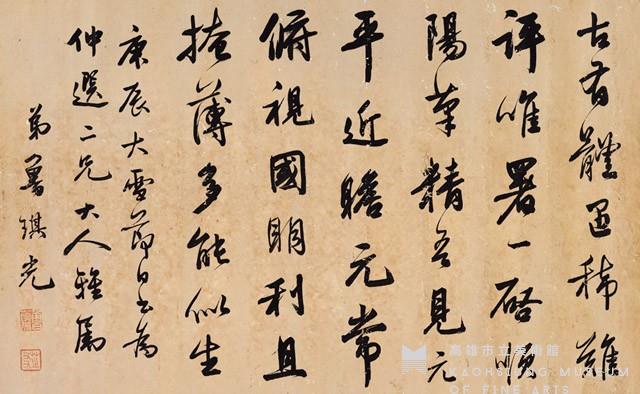 古有體稀難
評唯署一啓順
陽草精吾見元
平近瞻元常
俯視國明利且
掩薄多能似生
庚辰大雪節日书為
仲選二兄大人雅屬
弟魯琪光
高雄市立美術館
KAOHSIUNG MUSEUM
OF FINE ARTS